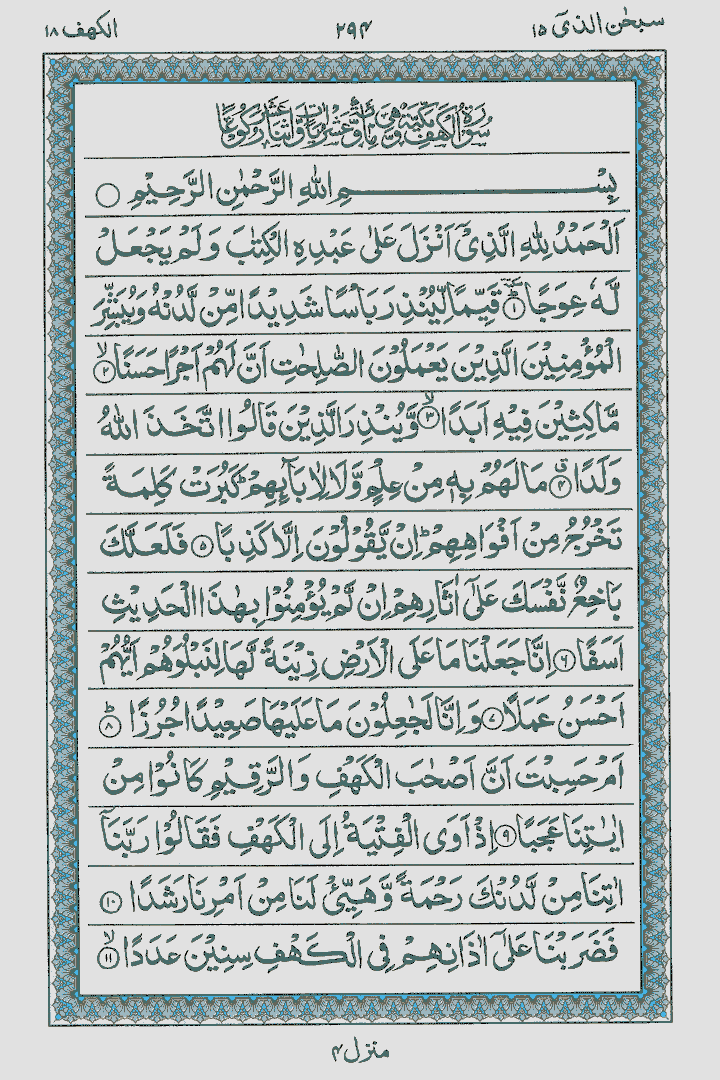 سبحٰن الذیٓ ۱۵ ۲۹۴ الكهف ۱۸
سُوْرَةُ الْكَهْفِ مَكِّيَّةٌ وَّهِيَ مِائَةٌ وَّعَشْرُ اٰيَاتٍ وَّاثْنَا عَشَرَ رُكُوْعًا
بِسْمِ اللّٰهِ الرَّحْمٰنِ الرَّحِيْمِ
اَلْحَمْدُ لِلّٰهِ الَّذِيْۤ اَنْزَلَ عَلٰى عَبْدِهِ الْكِتٰبَ وَ لَمْ يَجْعَلْ
لَّهٗ عِوَجًا ؕ۱ قَيِّمًا لِّيُنْذِرَ بَاْسًا شَدِيْدًا مِّنْ لَّدُنْهُ وَيُبَشِّرَ
الْمُؤْمِنِيْنَ الَّذِيْنَ يَعْمَلُوْنَ الصّٰلِحٰتِ اَنَّ لَهُمْ اَجْرًا حَسَنًا ۙ۲
مَّاكِثِيْنَ فِيْهِ اَبَدًا ۙ۳ وَّيُنْذِرَ الَّذِيْنَ قَالُوا اتَّخَذَ اللّٰهُ
وَلَدًا ۗ۴ مَا لَهُمْ بِهٖ مِنْ عِلْمٍ وَّلَا لِاٰبَآئِهِمْ ؕ كَبُرَتْ كَلِمَةً
تَخْرُجُ مِنْ اَفْوَاهِهِمْ ؕ اِنْ يَّقُوْلُوْنَ اِلَّا كَذِبًا ۵ فَلَعَلَّكَ
بَاخِعٌ نَّفْسَكَ عَلٰٓى اٰثَارِهِمْ اِنْ لَّمْ يُؤْمِنُوْا بِهٰذَا الْحَدِيْثِ
اَسَفًا ۶ اِنَّا جَعَلْنَا مَا عَلَى الْاَرْضِ زِيْنَةً لَّهَا لِنَبْلُوَهُمْ اَيُّهُمْ
اَحْسَنُ عَمَلًا ۷ وَ اِنَّا لَجٰعِلُوْنَ مَا عَلَيْهَا صَعِيْدًا جُرُزًا ؕ۸
اَمْ حَسِبْتَ اَنَّ اَصْحٰبَ الْكَهْفِ وَ الرَّقِيْمِ كَانُوْا مِنْ
اٰيٰتِنَا عَجَبًا ۹ اِذْ اَوَى الْفِتْيَةُ اِلَى الْكَهْفِ فَقَالُوْا رَبَّنَاۤ
اٰتِنَا مِنْ لَّدُنْكَ رَحْمَةً وَّ هَيِّئْ لَنَا مِنْ اَمْرِنَا رَشَدًا ۱۰
فَضَرَبْنَا عَلٰٓى اٰذَانِهِمْ فِى الْكَهْفِ سِنِيْنَ عَدَدًا ۙ۱۱
منزل ۴